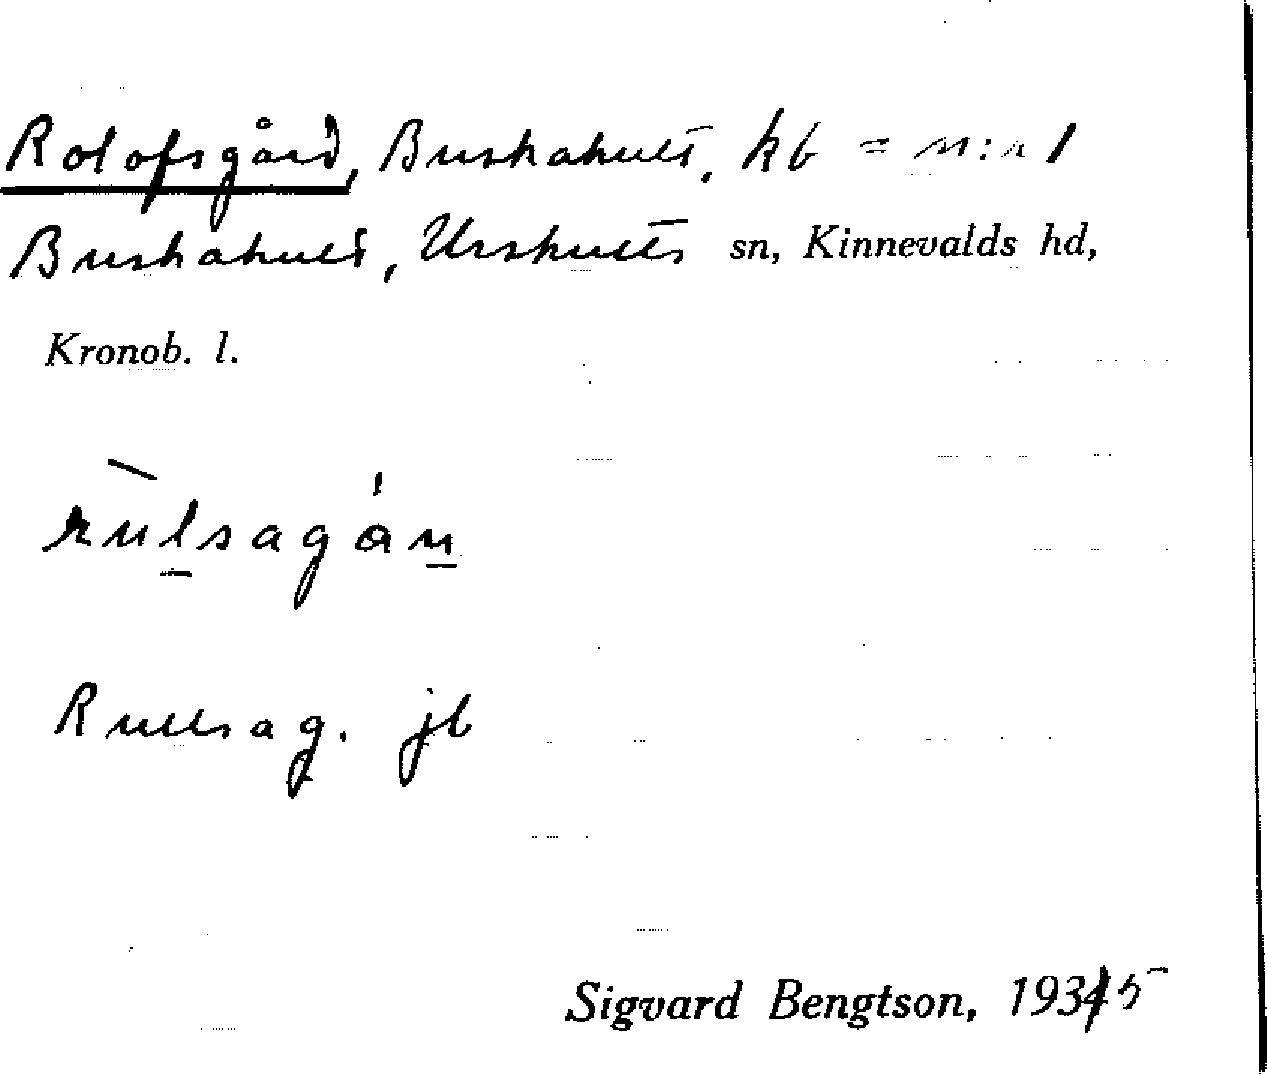 Rolofsgård, Buskahult, kb = n:r 1
Buskahult, Urshults sn, Kinnevalds hd,
Kronob. l.
rulsagån
Rullsag. jb
Sigvard Bengtson, 1935